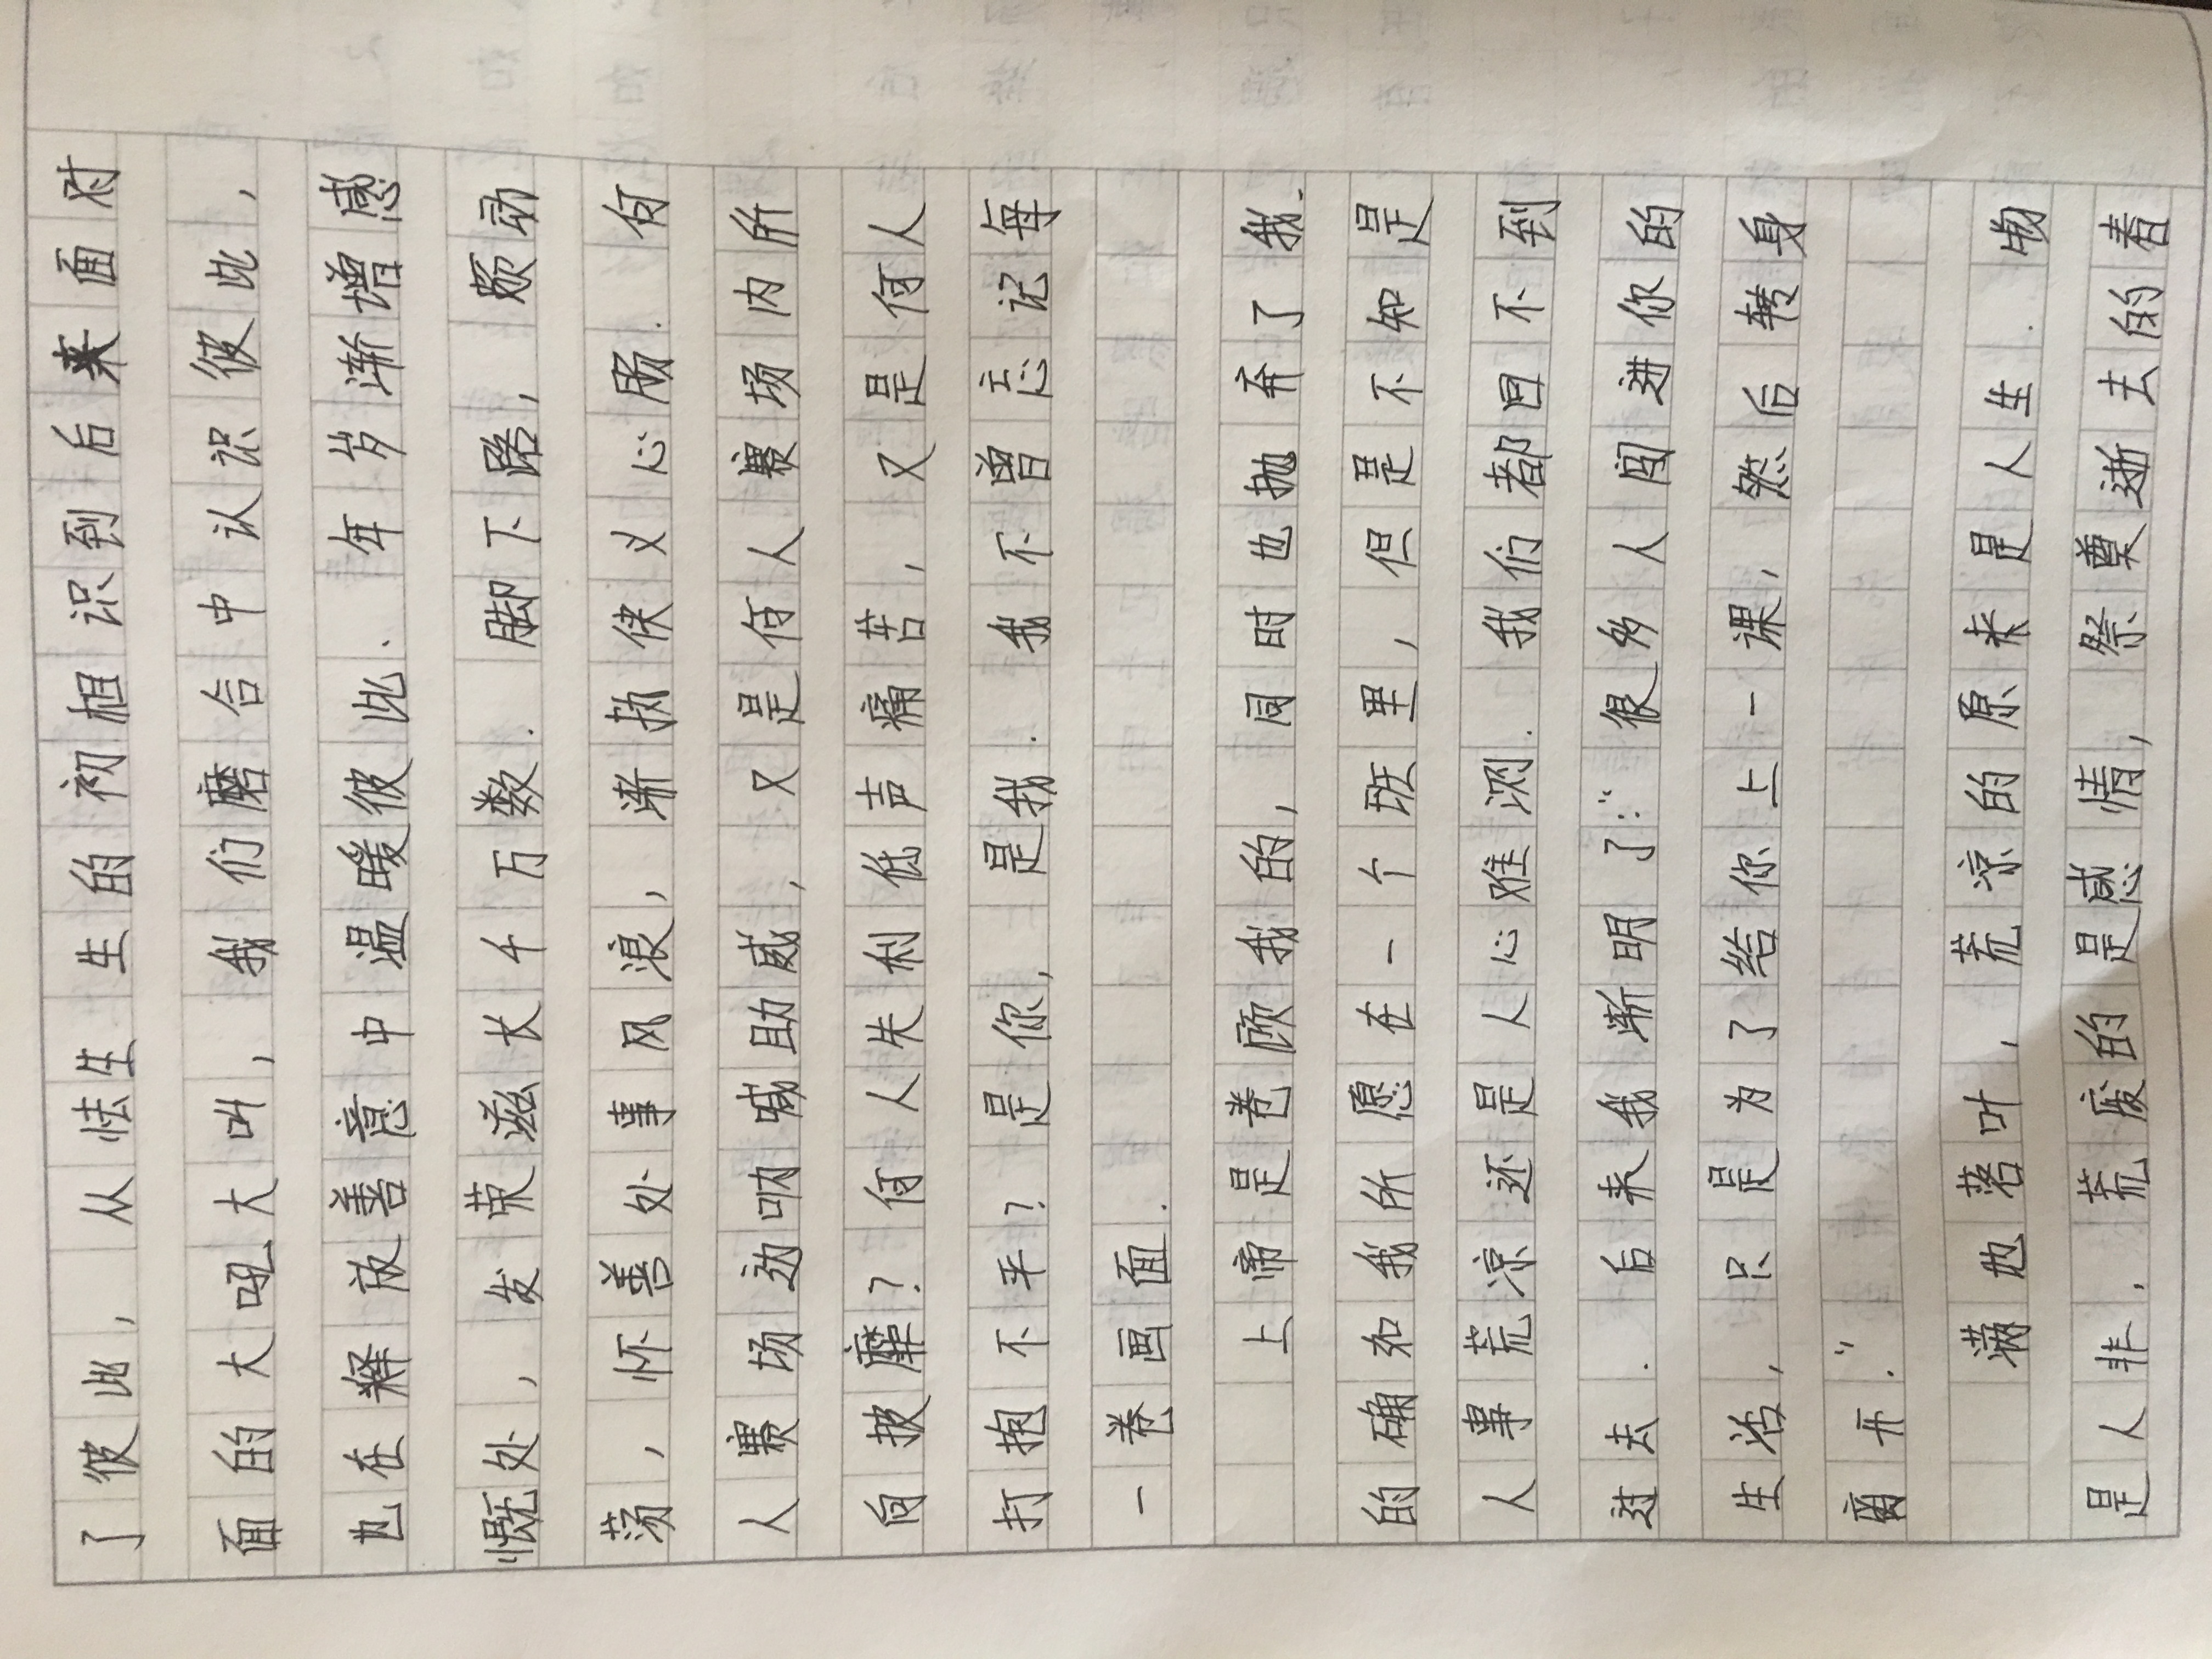 了彼此，从怯生生的初相识到后来面对
面的大吼大叫，我们磨合中认识彼此，
也在释放善意中温暖彼此．年岁渐增感
慨处，发荣滋长千万数．脚下路，颇动
荡，怀善处事风浪，渐执侠义心肠．何
人赛场边呐喊助威，又是何人赛场内所
向披靡？何人失利低声痛苦，又是何人
打抱不平？是你，是我．我不曾忘记每
一卷画面．
上帝是卷顾我的，同时也抛弃了我．
的确如我所愿在一个班里，但是不知是
人事荒凉还是人心难测．我们都回不到
过去．后来我渐明了：“很多人闯进你的
生活，只是为了给你上一课，然后转身
离开．”
满地落叶，荒凉的原来是人生．物
是人非．荒废的是感情，祭奠逝去的着